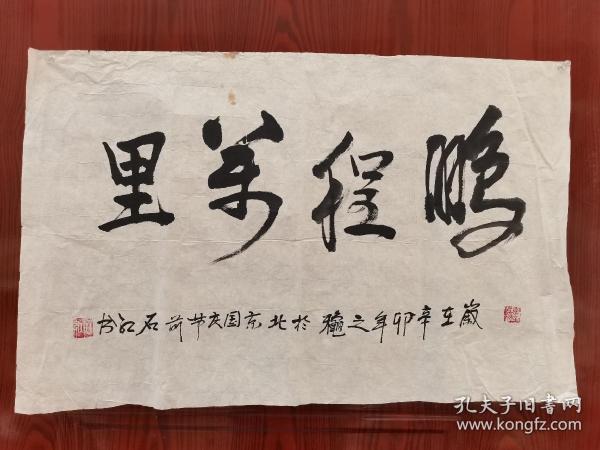 鹏程萬里
歲在辛卯年之龝於北京国庆节前石红书
孔夫子旧書网
www.kongfz.com